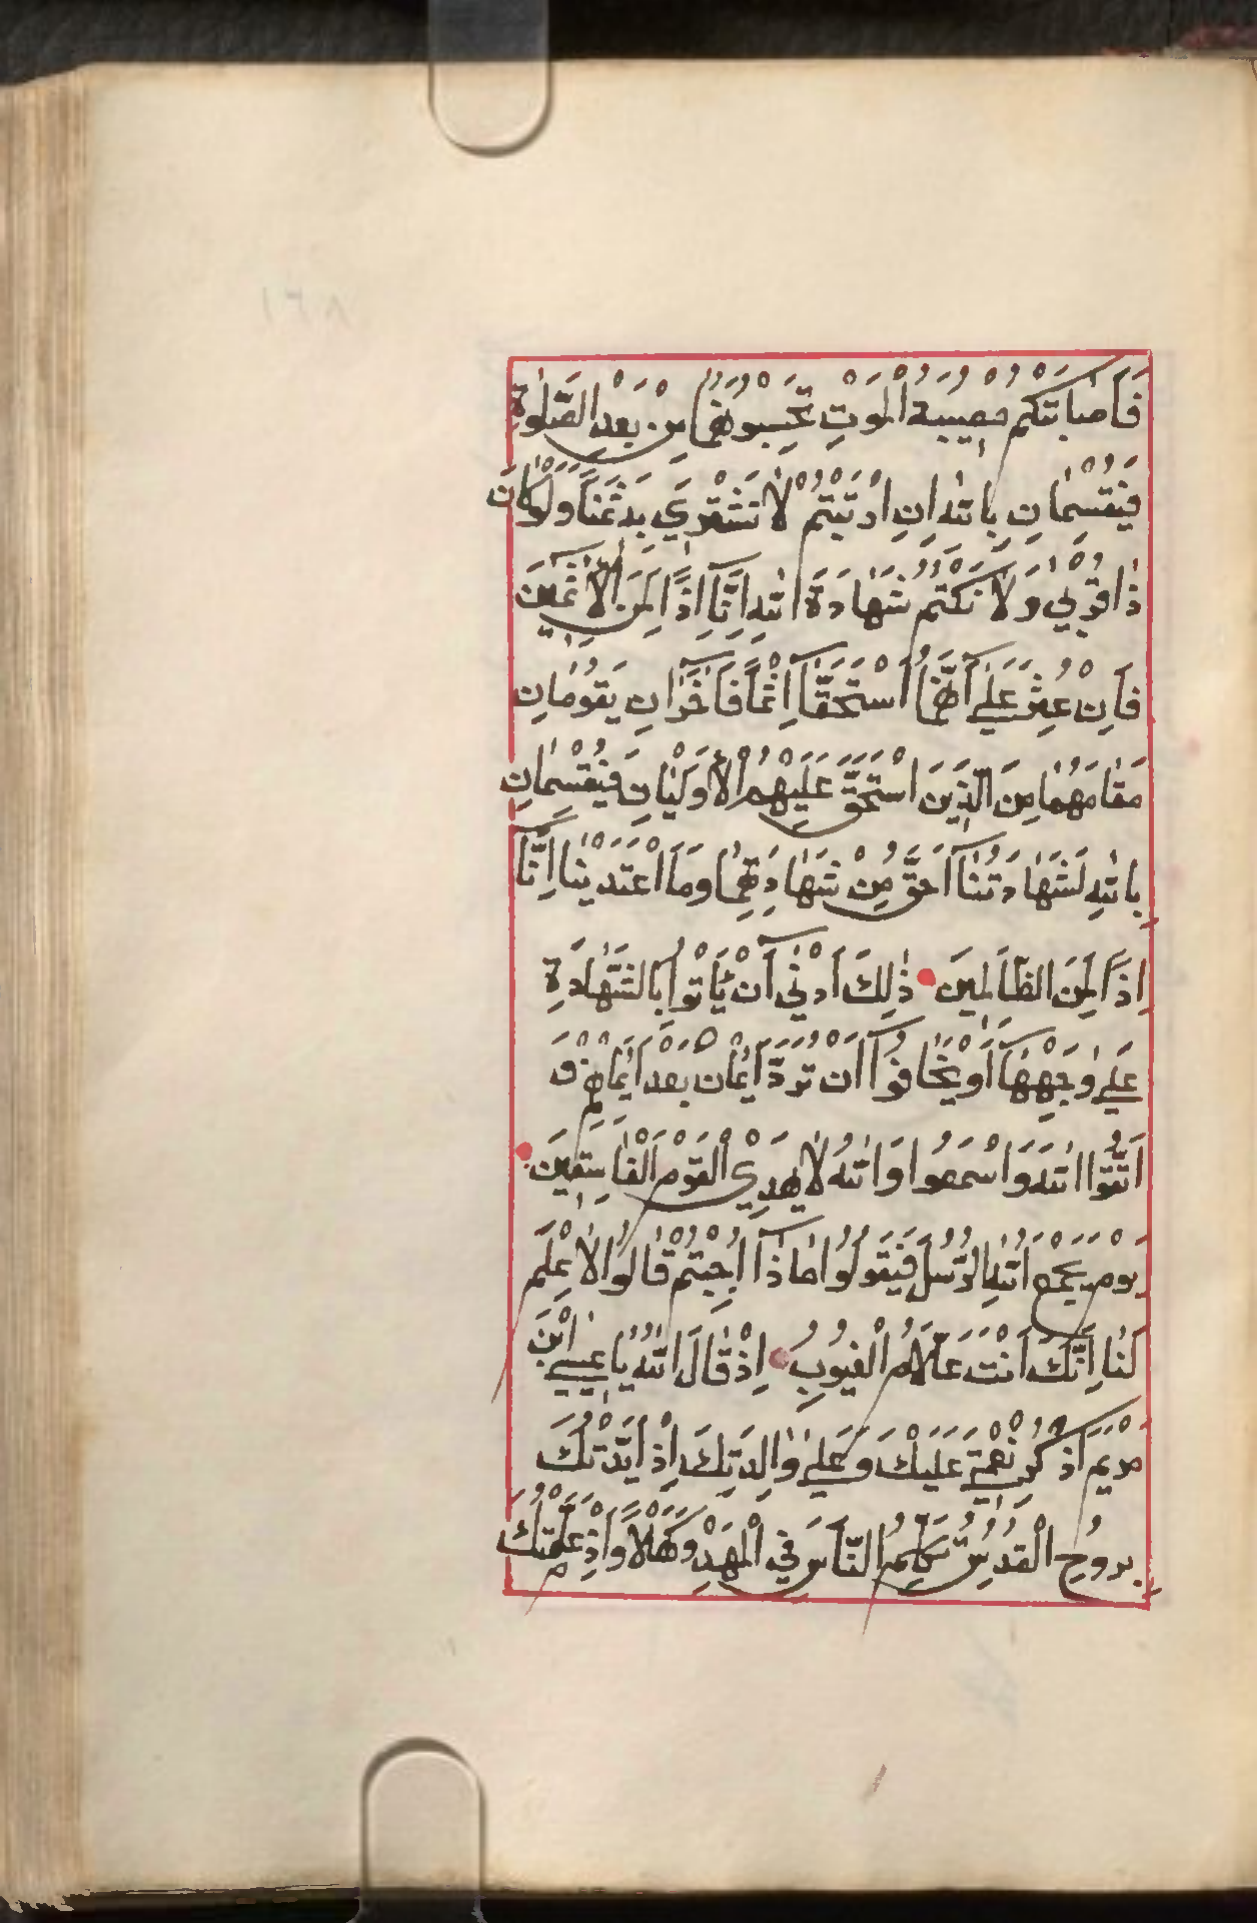 فَاَصَابَتْكُمْ مُصِيبَةُ الْمَوْتِ تَحْبِسُونَهُمَا مِنْ بَعْدِ الصَّلٰوةِ
فَيُقْسِمَانِ بِاللّٰهِ اِنِ ارْتَبْتُمْ لَا نَشْتَرِي بِهِ ثَمَنًا وَلَوْ كَانَ
ذَا قُرْبٰي وَلَا نَكْتُمُ شَهَادَةَ اللّٰهِ اِنَّآ اِذًا لَمِنَ الْاٰثِمِينَ
فَاِنْ عُثِرَ عَلٰٓي اَنَّهُمَا اسْتَحَقَّآ اِثْمًا فَاٰخَرَانِ يَقُومَانِ
مَقَامَهُمَا مِنَ الَّذِينَ اسْتَحَقَّ عَلَيْهِمُ الْاَوْلَيَانِ فَيُقْسِمَانِ
بِاللّٰهِ لَشَهَادَتُنَآ اَحَقُّ مِنْ شَهَادَتِهِمَا وَمَا اعْتَدَيْنَا اِنَّآ
اِذًا لَمِنَ الظَّالِمِينَ ذٰلِكَ اَدْنٰٓي اَنْ يَاْتُوا بِالشَّهَادَةِ
عَلٰي وَجْهِهَآ اَوْ يَخَافُوٓا اَنْ تُرَدَّ اَيْمَانٌ بَعْدَ اَيْمَانِهِمْ وَ
اتَّقُوا اللّٰهَ وَاسْمَعُوا وَاللّٰهُ لَا يَهْدِي الْقَوْمَ الْفَاسِقِينَ
يَوْمَ يَجْمَعُ اللّٰهُ الرُّسُلَ فَيَقُولُ مَاذَآ اُجِبْتُمْ قَالُوا لَا عِلْمَ
لَنَا اِنَّكَ اَنْتَ عَلَّامُ الْغُيُوبِ اِذْ قَالَ اللّٰهُ يَا عِيسَي ابْنَ
مَرْيَمَ اذْكُرْ نِعْمَتِي عَلَيْكَ وَعَلٰي وَالِدَتِكَ اِذْ اَيَّدْتُكَ
بِرُوحِ الْقُدُسِ تُكَلِّمُ النَّاسَ فِي الْمَهْدِ وَكَهْلًا وَاِذْ عَلَّمْتُكَ